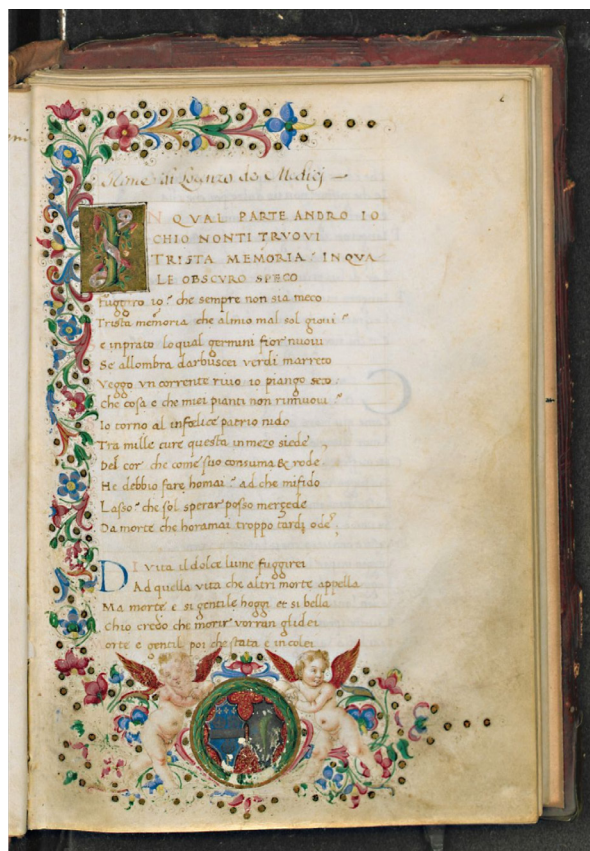 Rime di Lorenzo de Medicj
IN QVAL PARTE ANDRO IO
CHIO NONTI TRVOVI
TRISTA MEMORIA? IN QVA
LE OBSCVRO SPECO
Fuggiro io? che sempre non sia meco
Trista memoria che almio mal sol giovi?
e inprato loqual germini fior nuovi
Se allombra darbuscei verdi marreco
Veggo vn corrente rivo io piango seco:
Che cosa e che miei pianti non rinnuovi?
Io torno al infelice patrio nido
Tra mille cure questa in mezo siede
Del cor che come suo consuma & rode
He debbio fare homai? ad che mifido
Lasso? che sol sperar posso mercede
Da morte che horamai troppo tardj ode?
DI vita il dolce lume fuggirei
Ad quella vita che altri morte appella
Ma morte e si gentile hoggi et si bella
Chio credo che morir vorran glidei
orte e gentil poi che stata e in colei